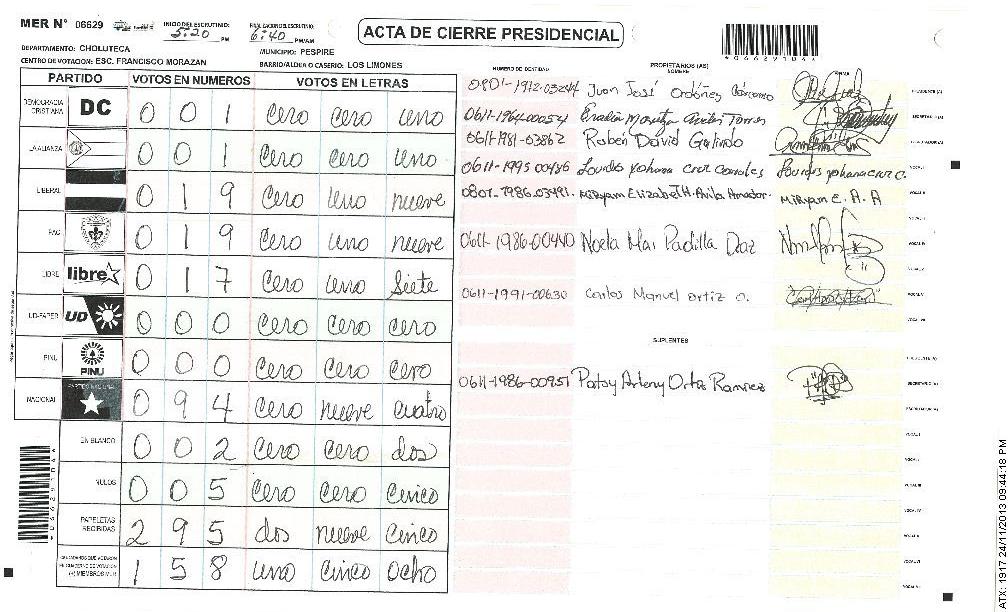 MER N° 06629 INICIO DEL ESCRUTINIO: 5:20 PM FINALIZACION DEL ESCRUTINIO: 6:40 PM/AM
ACTA DE CIERRE PRESIDENCIAL
DEPARTAMENTO: CHOLUTECA MUNICIPIO: PESPIRE
CENTRO DE VOTACION: ESC. FRANCISCO MORAZAN BARRIO/ALDEA O CASERIO: LOS LIMONES
PARTIDO VOTOS EN NUMEROS VOTOS EN LETRAS
DEMOCRACIA CRISTIANA DC 0 0 1 cero cero uno
LA ALIANZA 0 0 1 cero cero uno
LIBERAL 0 1 9 cero uno nueve
PAC 0 1 9 cero uno nueve
LIBRE libre 0 1 7 cero uno siete
UD-FAPER UD 0 0 0 cero cero cero
PINU PINU 0 0 0 cero cero cero
NACIONAL 0 9 4 cero nueve cuatro
EN BLANCO 0 0 2 cero cero dos
NULOS 0 0 5 cero cero cinco
PAPELETAS RECIBIDAS 2 9 5 dos nueve cinco
CIUDADANOS QUE VOTARON
(+) MIEMBROS MER 1 5 8 uno cinco ocho
NUMERO DE IDENTIDAD PROPIETARIOS (AS) NOMBRE FIRMA
0801-1972-03244 Juan José Ordóñez
0611-1964-00054
0611-1981-03862 Rubén David Galindo
0611-1995 00486 Lourdes Yohana Cruz
0801-1986-03491. Miryam Elizabeth Avila Amador. Miryam E. A. A
0611-1986-00440 Padilla
0611-1991-00630 Carlos Manuel Ortiz O.
SUPLENTES
0611-1986-00951 Patsy Arleny Ortiz Ramirez
*06629104*
ATX: 1917 24/11/2013 09:44:18 PM